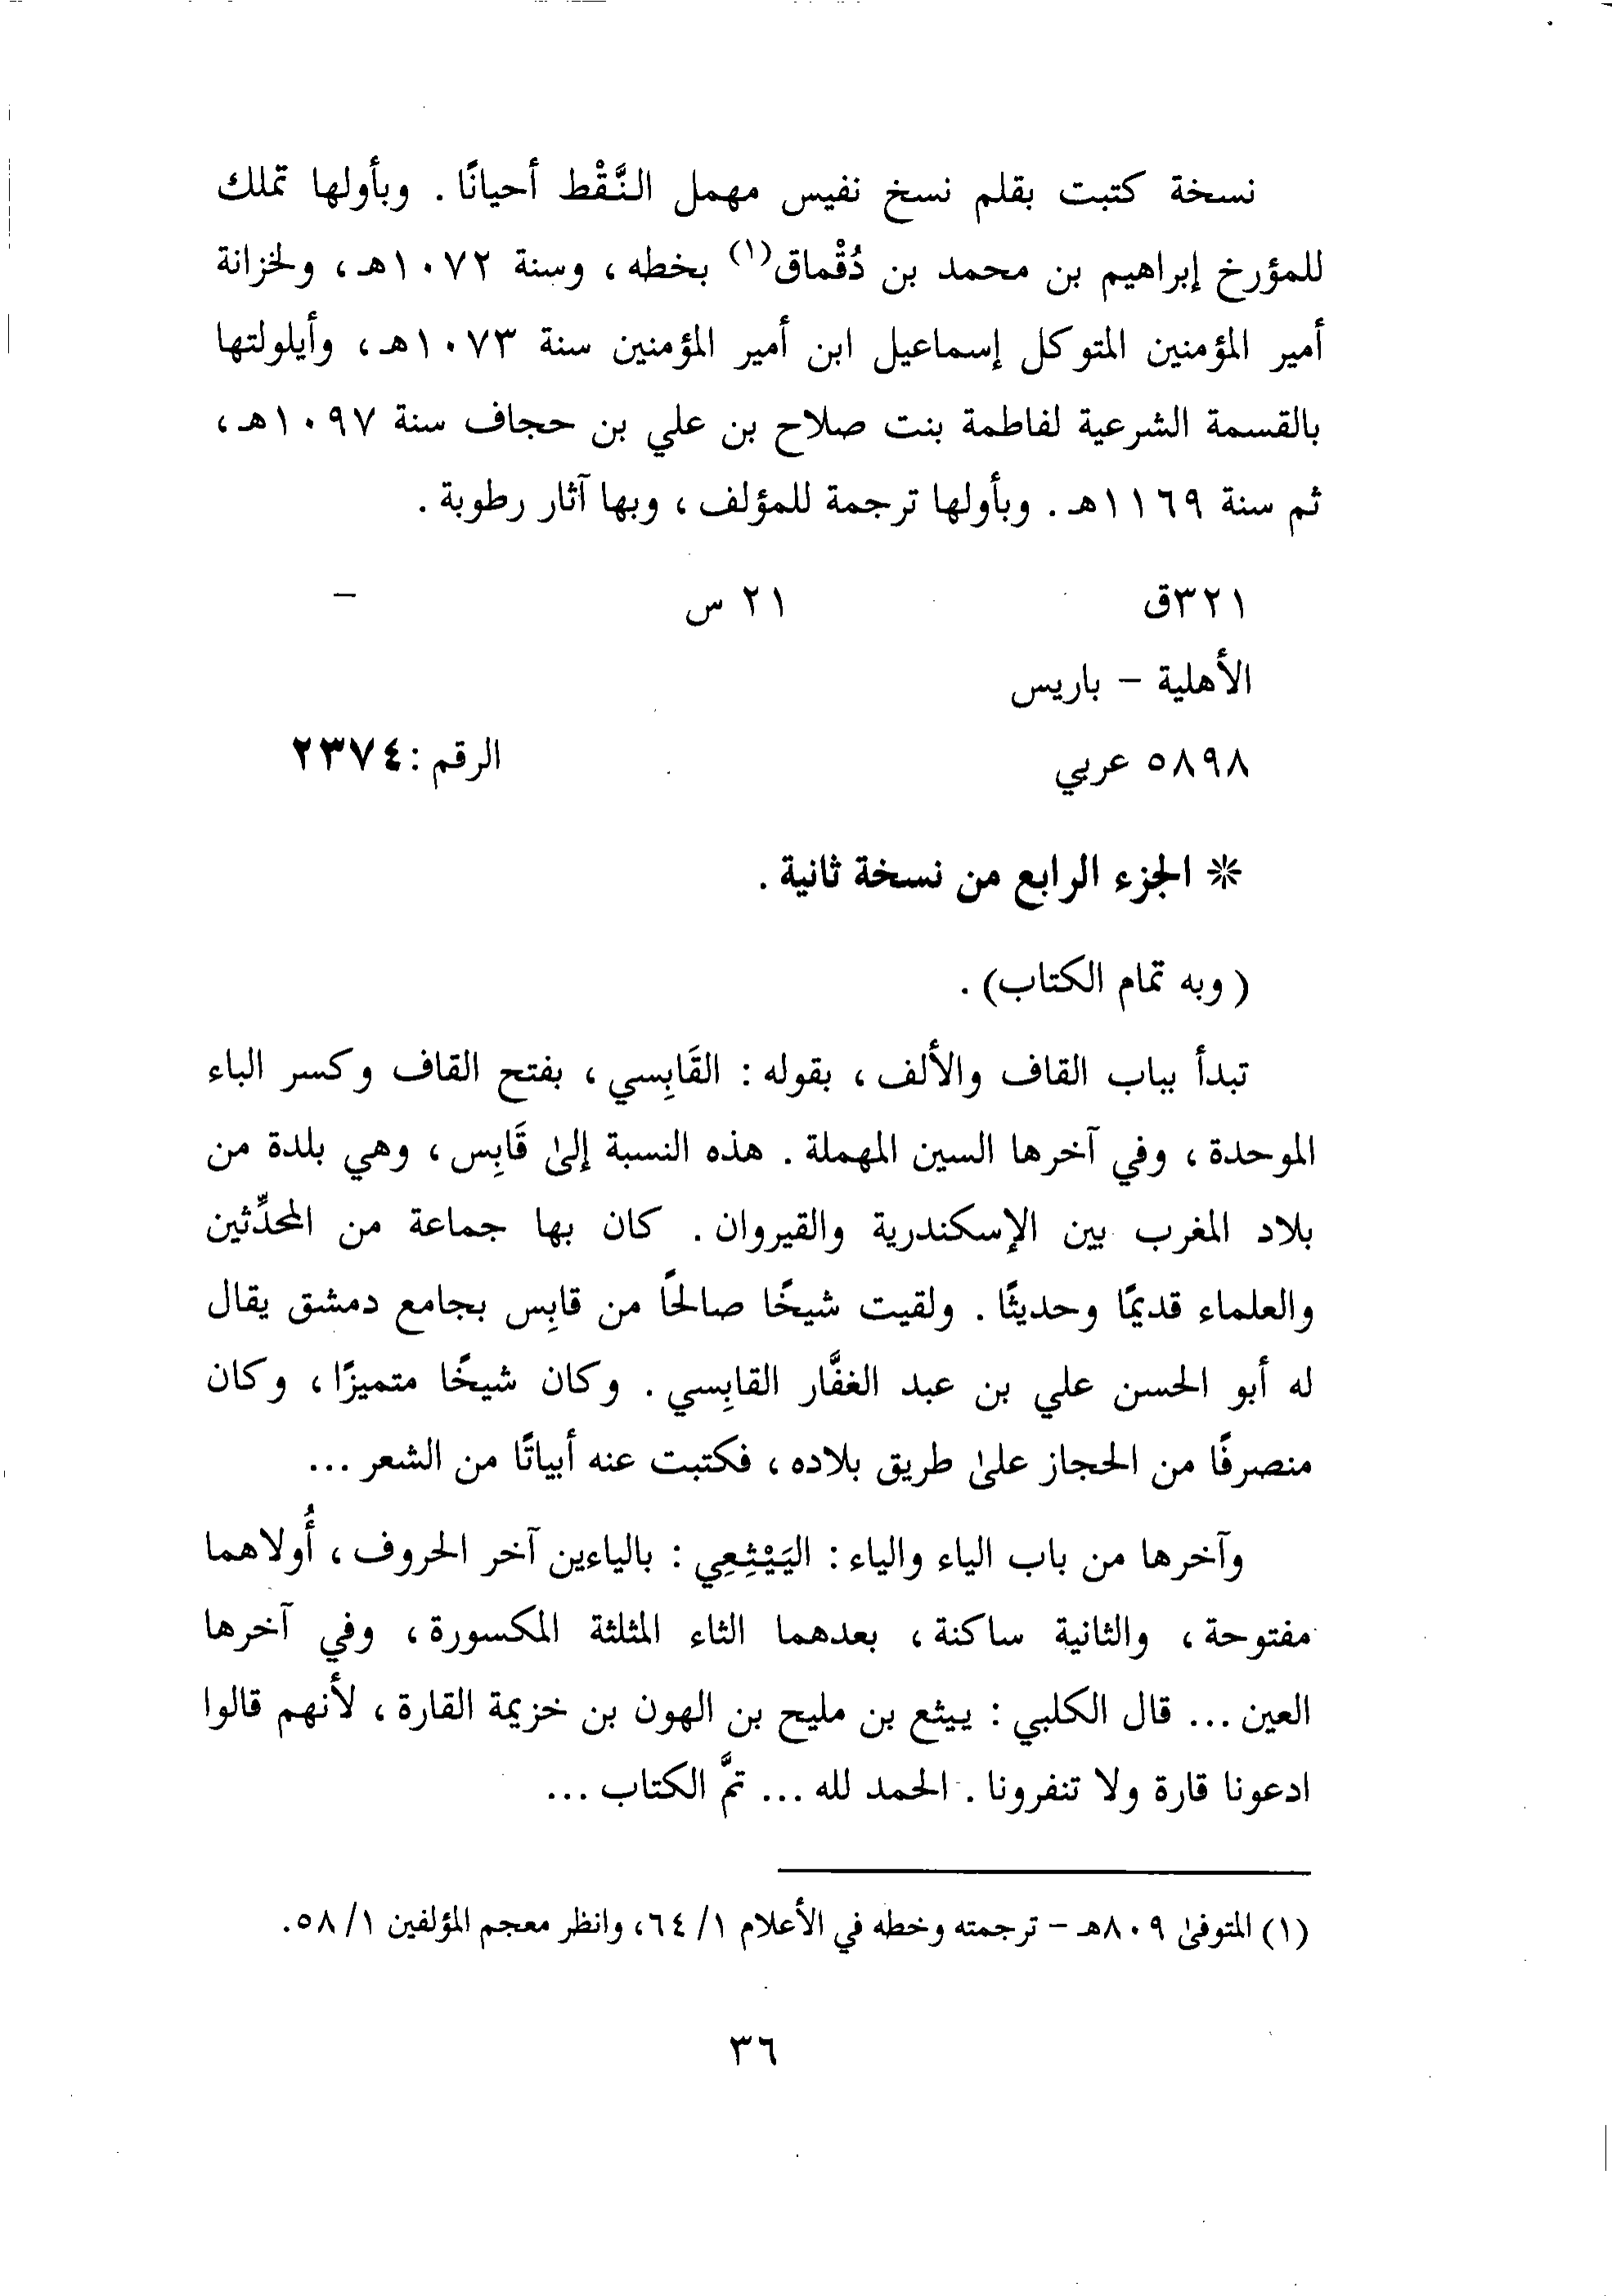 نسخة كتبت بقلم نسخ نفيس مهمل النَّقْط أحيانًا . وبأولها تملك
للمؤرخ إبراهيم بن محمد بن دُقْماق(١) بخطه ، وسنة ١٠٧٢هـ ، ولخزانة
أمير المؤمنين المتوكل إسماعيل ابن أمير المؤمنين سنة ١٠٧٣هـ ، وأيلولتها
بالقسمة الشرعية لفاطمة بنت صلاح بن علي بن حجاف سنة ١٠٩٧هـ ،
ثم سنة ١١٦٩هـ . وبأولها ترجمة للمؤلف ، وبها آثار رطوبة .
٣٢١ق ٢١ س –
الأهلية – باريس
٥٨٩٨ عربي الرقم : ٢٣٧٤
* الجزء الرابع من نسخة ثانية .
( وبه تمام الكتاب) .
تبدأ بباب القاف والألف ، بقوله : القَابِسي ، بفتح القاف وكسر الباء
الموحدة ، وفي آخرها السين المهملة . هذه النسبة إلىٰ قَابِس ، وهي بلدة من
بلاد المغرب بين الإسكندرية والقيروان . كان بها جماعة من المحدِّثين
والعلماء قديمًا وحديثًا . ولقيت شيخًا صالحًا من قابِس بجامع دمشق يقال
له أبو الحسن علي بن عبد الغفَّار القابِسي . وكان شيخًا متميزًا ، وكان
منصرفًا من الحجاز علىٰ طريق بلاده ، فكتبت عنه أبياتًا من الشعر ...
وآخرها من باب الياء والياء : اليَيْثِعِي : بالياءين آخر الحروف ، أُولاهما
مفتوحة ، والثانية ساكنة ، بعدهما الثاء المثلثة المكسورة ، وفي آخرها
العين ... قال الكلبي : ييثع بن مليح بن الهون بن خزيمة القارة ، لأنهم قالوا
ادعونا قارة ولا تنفرونا . الحمد لله ... تمَّ الكتاب ...
(١) المتوفىٰ ٨٠٩هـ – ترجمته وخطه في الأعلام ١/ ٦٤، وانظر معجم المؤلفين ١/ ٥٨.
٣٦